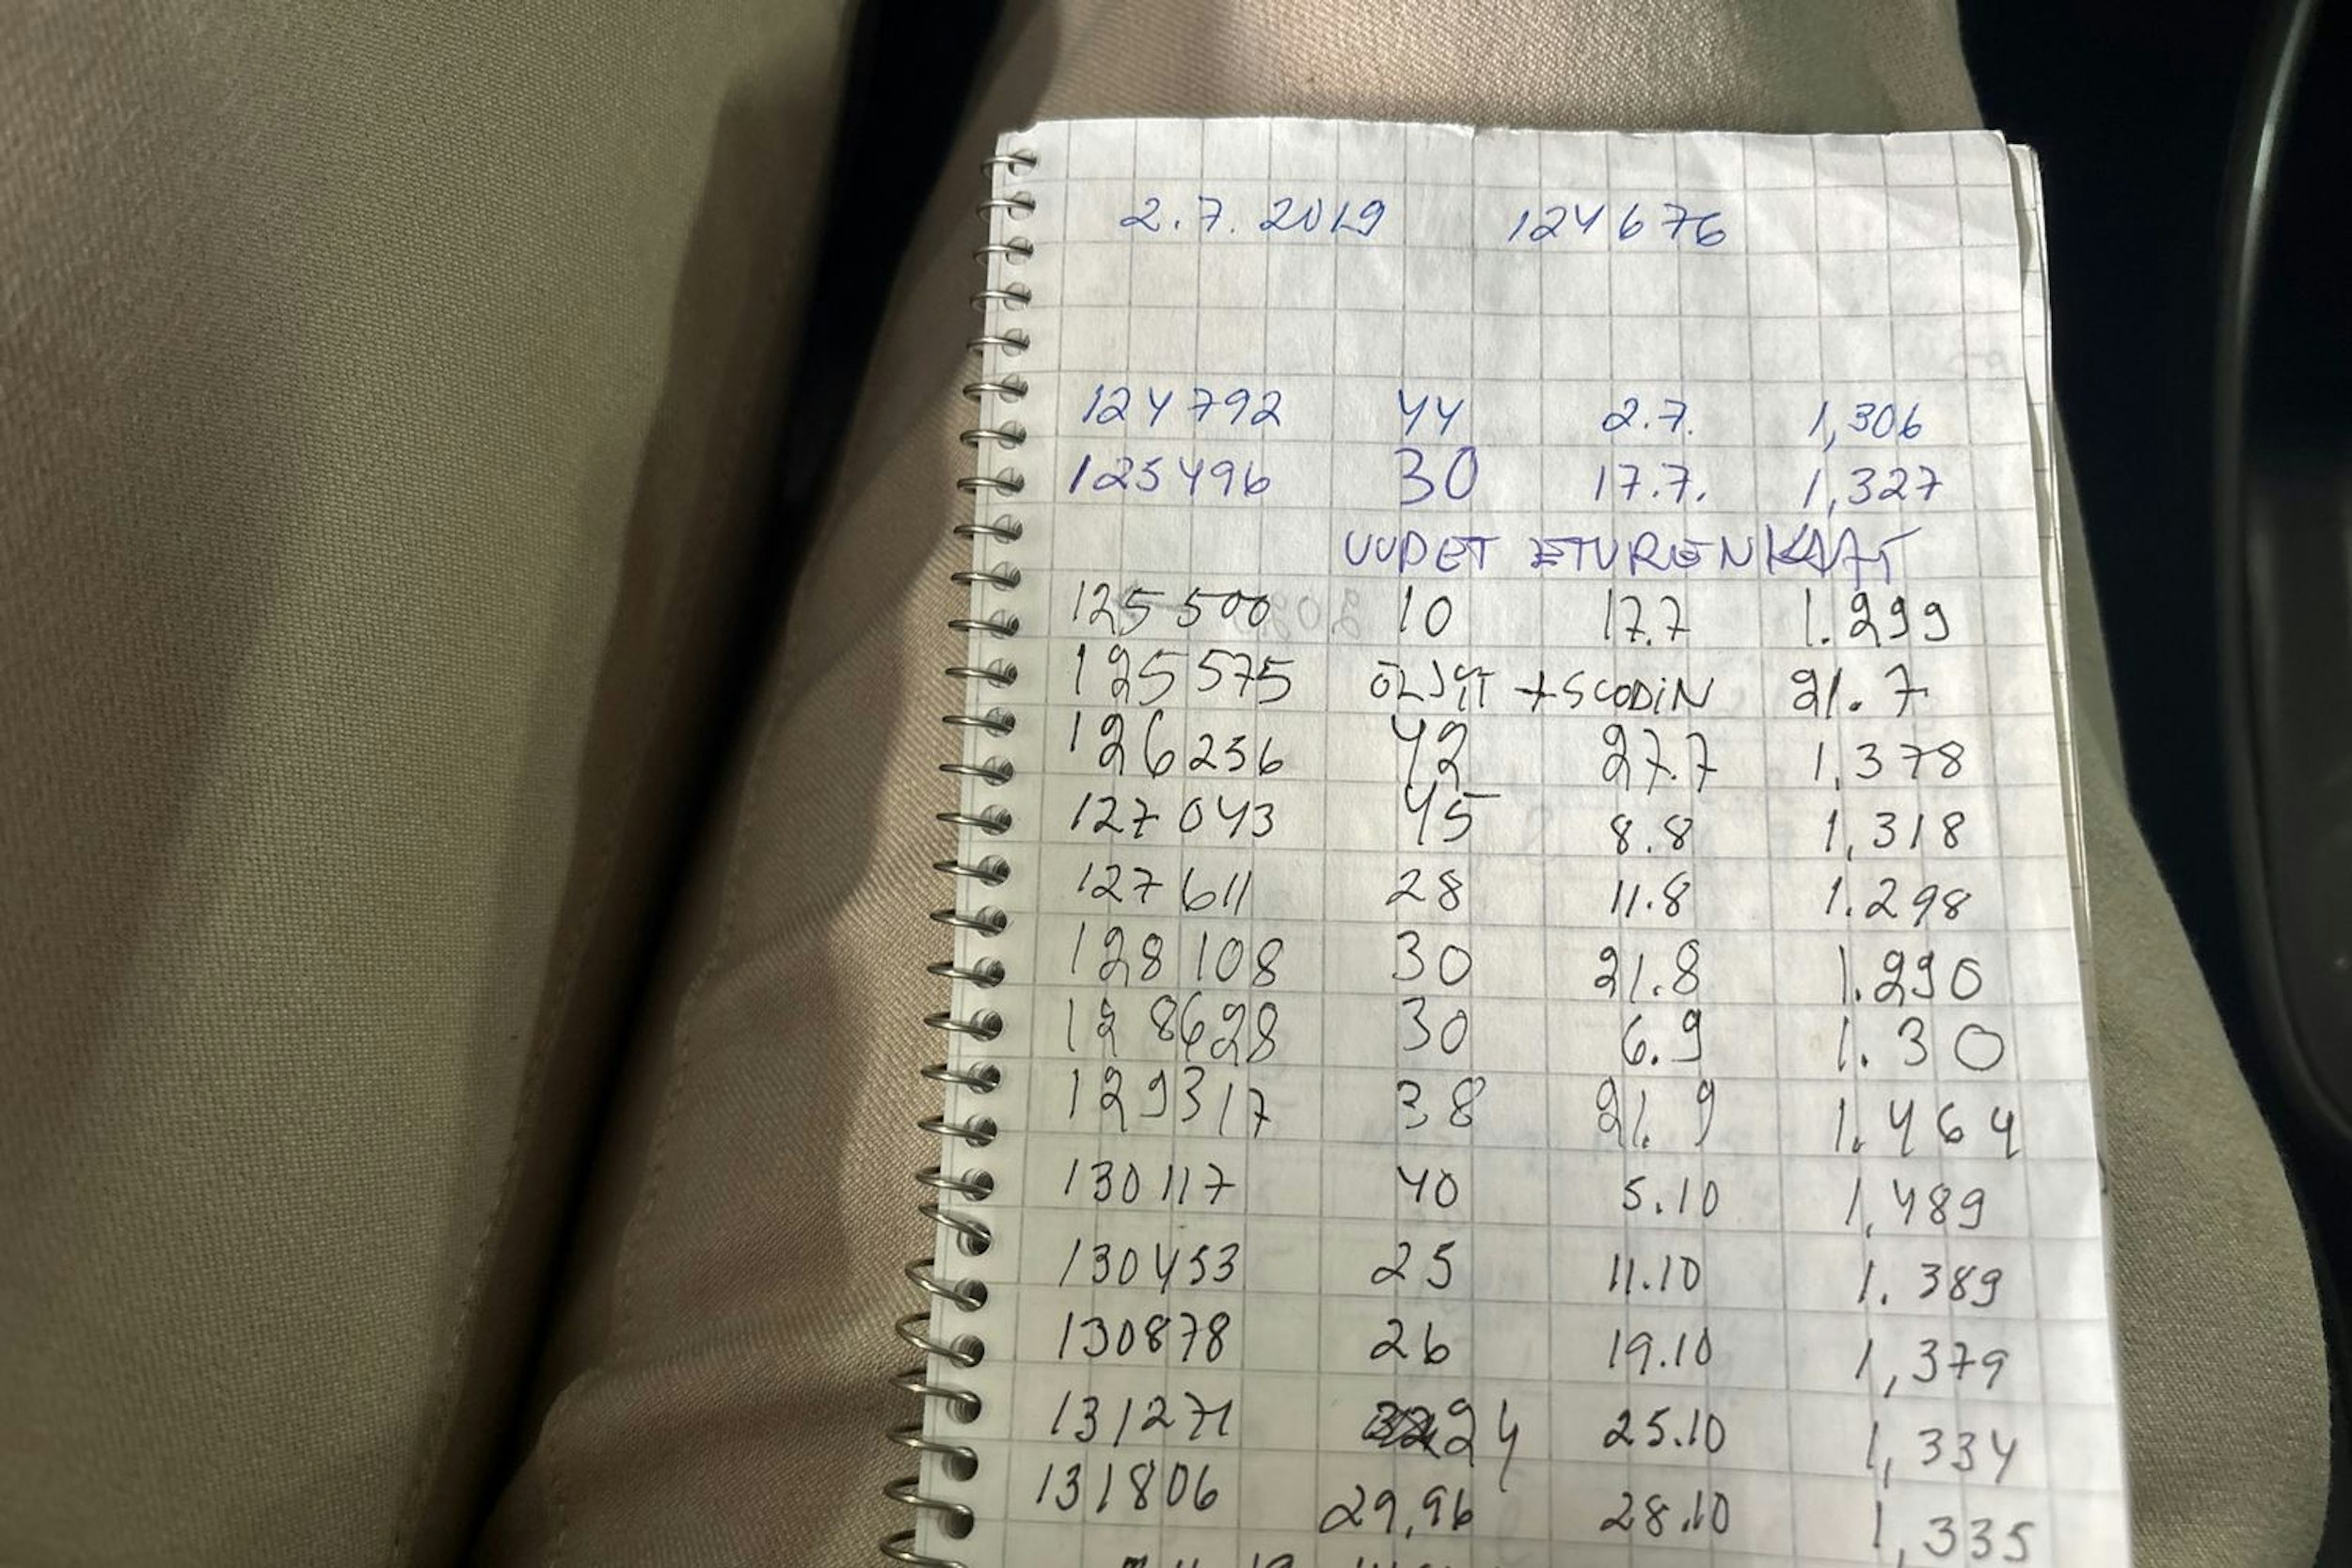 2.7.2019 124676
124792 44 2.7. 1,306
125496 30 17.7. 1,327
UUDET ETURENKAAT
125500 10 17.7 1.299
125575 ÖLJYT + SCODIN 21.7
126256 42 27.7 1,378
127043 45 8.8 1,318
127611 28 11.8 1.298
128108 30 21.8 1.290
128628 30 6.9 1.30
129317 38 21.9 1.464
130117 40 5.10 1,489
130453 25 11.10 1.389
130878 26 19.10 1,379
131271 24 25.10 1,334
131806 29,96 28.10 1,335